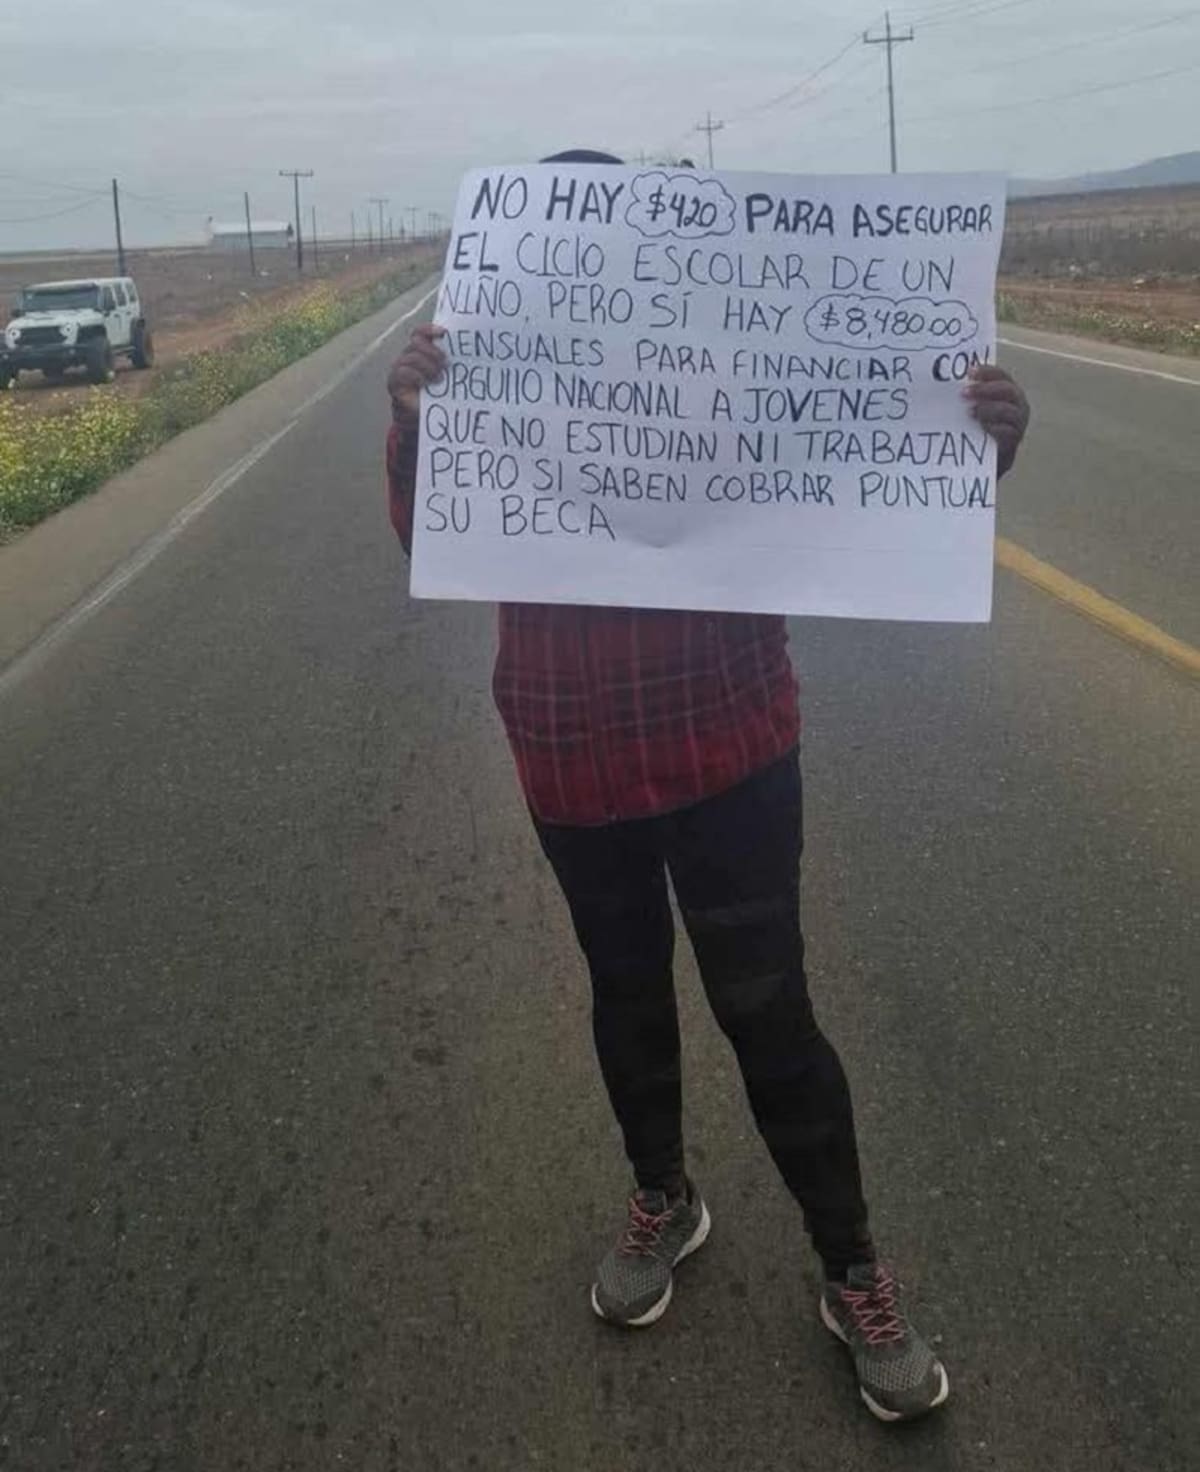 NO HAY $420 PARA ASEGURAR
EL CICIO ESCOLAR DE UN
NIÑO, PERO SÍ HAY $8,480.00
MENSUALES PARA FINANCIAR CON
ORGUIIO NACIONAL A JOVENES
QUE NO ESTUDIAN NI TRABAJAN
PERO SI SABEN COBRAR PUNTUAL
SU BECA